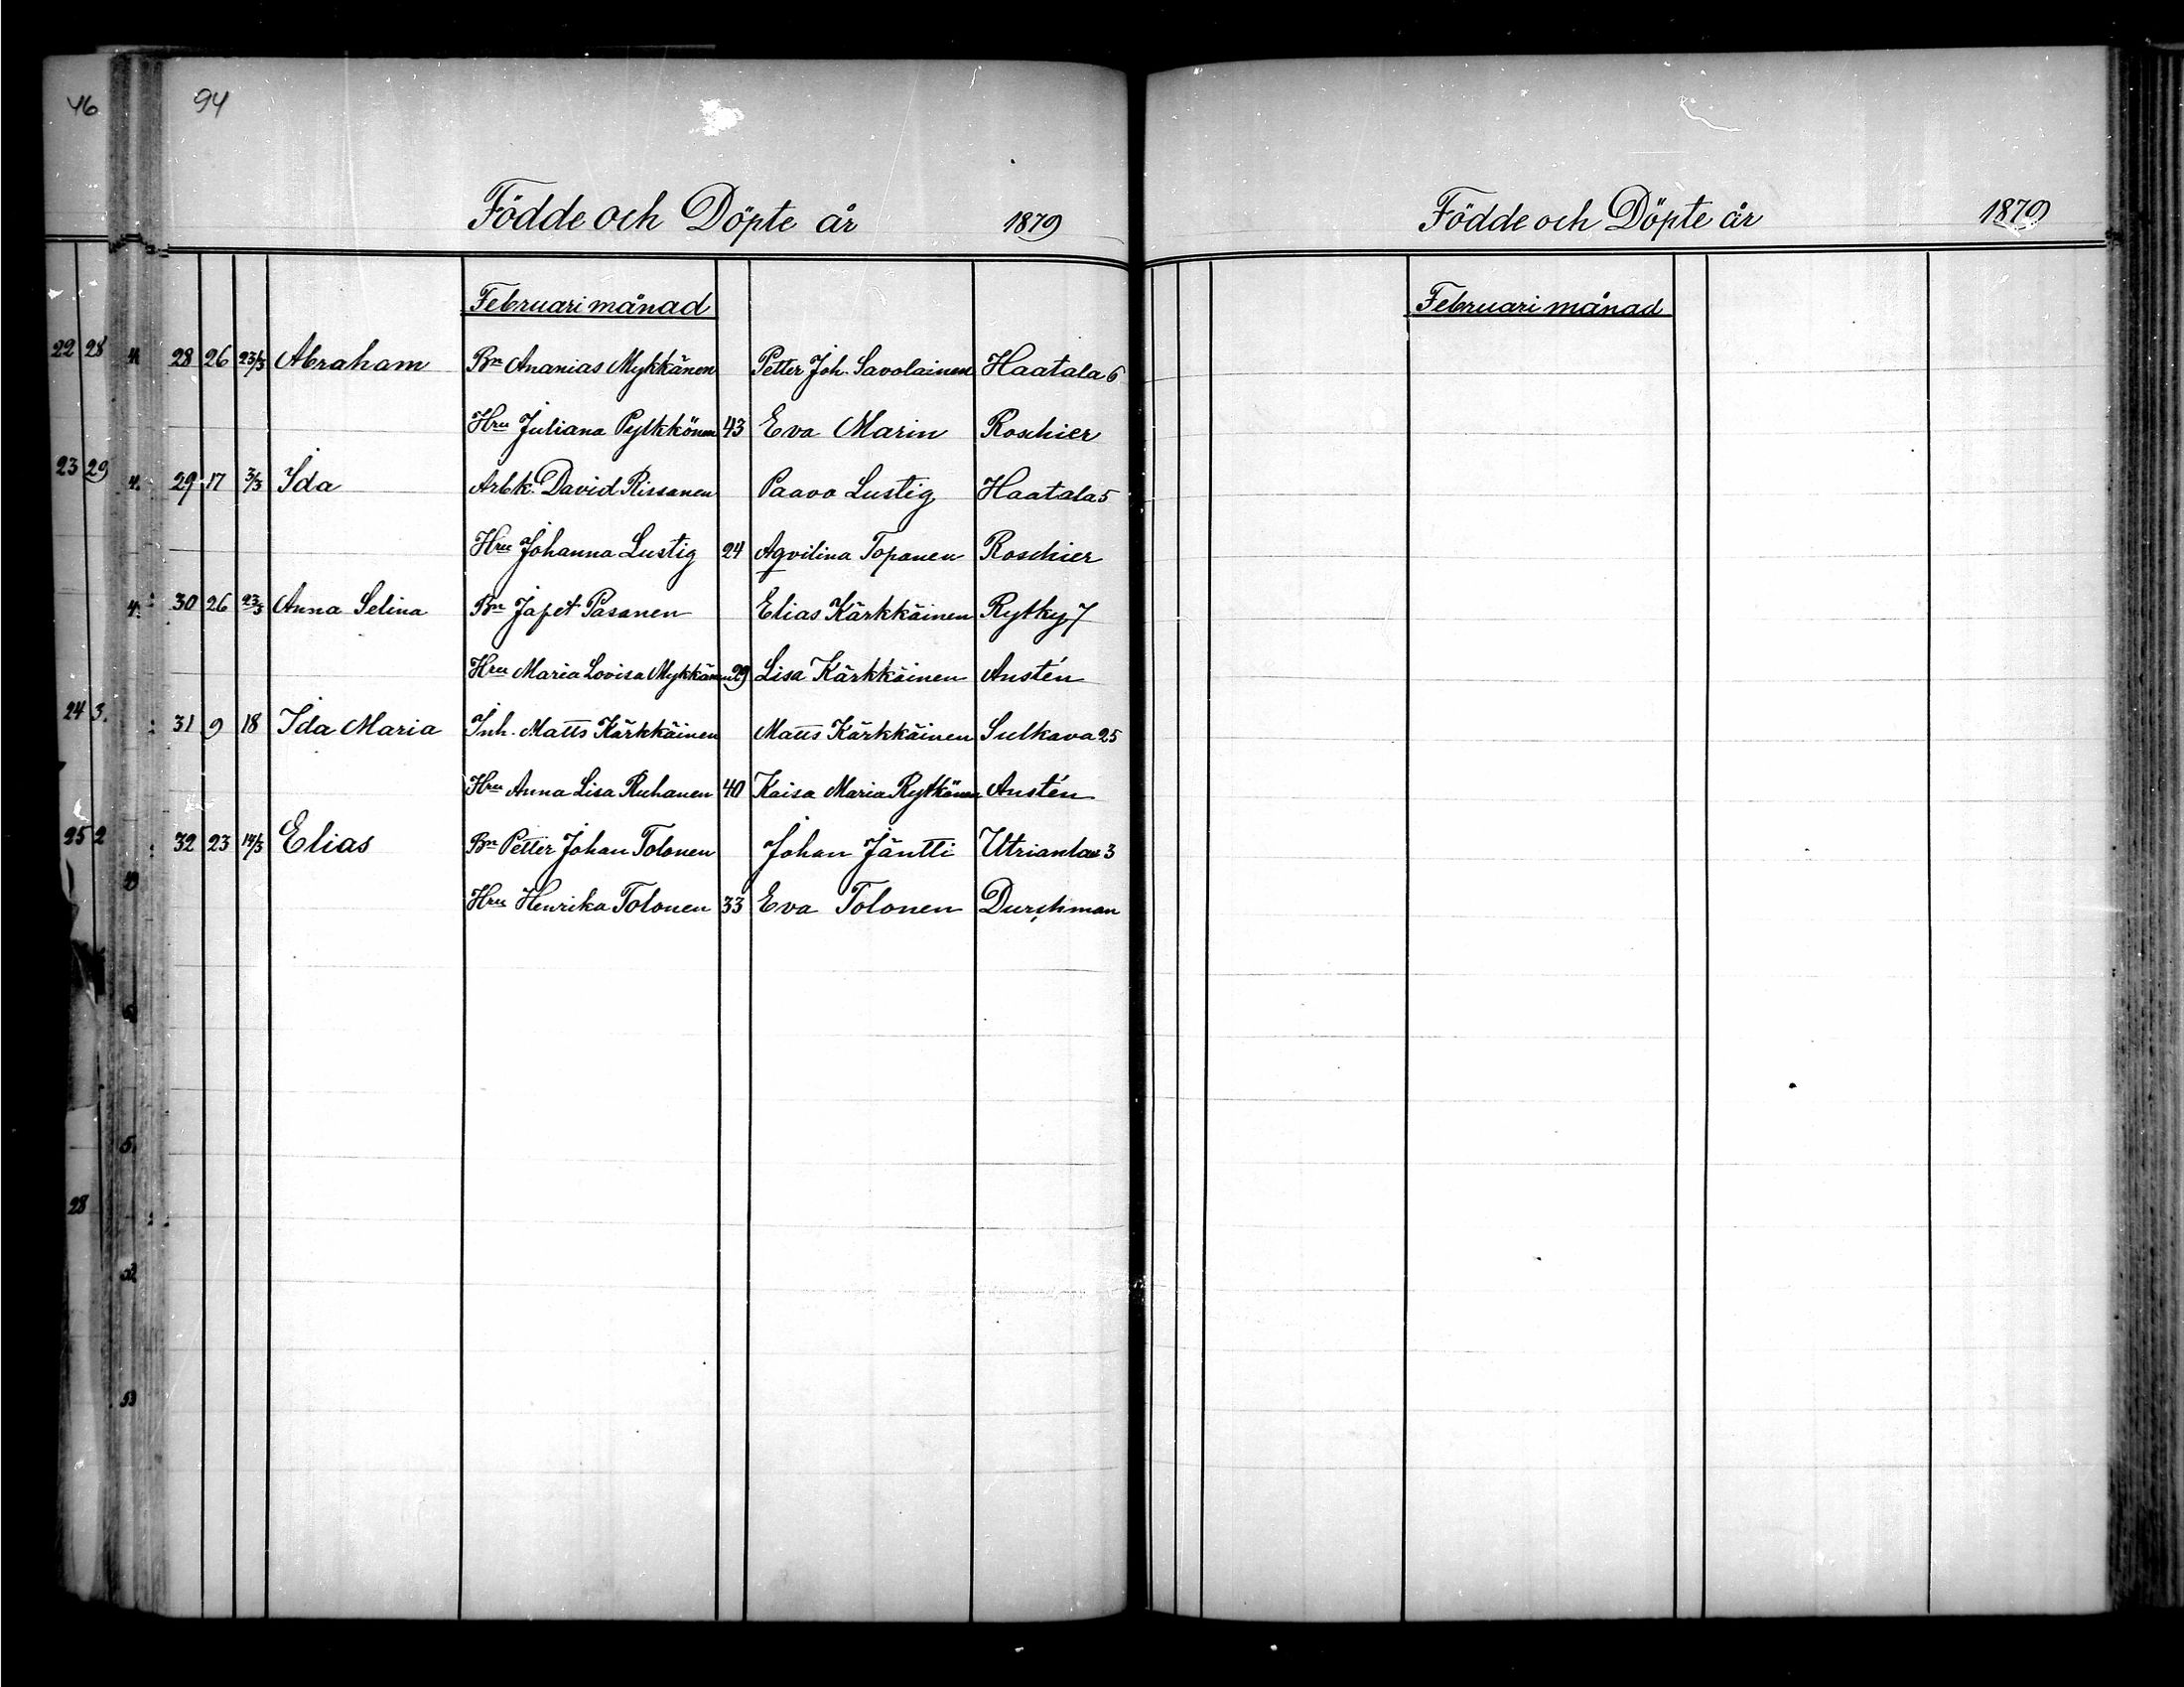 46
94
Födde och Döpte år 1879
Februari månad
22 28
28 26 23/3 Abraham Bn Ananias Mykkänen Petter Joh. Savolainen Haatala 6
Hru Juliana Pylkkönen 43 Eva Marin Roschier
23 29
29 17 3/3 Ida Arbk. David Rissanen Paavo Lustig Haatala 5
Hru Johanna Lustig 24 Aqvilina Toponen Roschier
30 26 23/3 Anna Selina Bn Jafet Pasanen Elias Kärkkäinen Rytky 7
Hru Maria Lovisa Mykkänen 29 Lisa Kärkkäinen Austén
24 3.
31 9 18 Ida Maria Inh. Matts Kärkkäinen Matts Kärkkäinen Sulkava 25
Hru Anna Lisa Ruhanen 40 Kaisa Maria Rytkönen Austén
25 2
32 23 14/3 Elias Bn Petter Johan Tolonen Johan Jäntti Utrianlax 3
Hru Henrika Tolonen 33 Eva Tolonen Durchman
28
Födde och Döpte år 1879
Februari månad